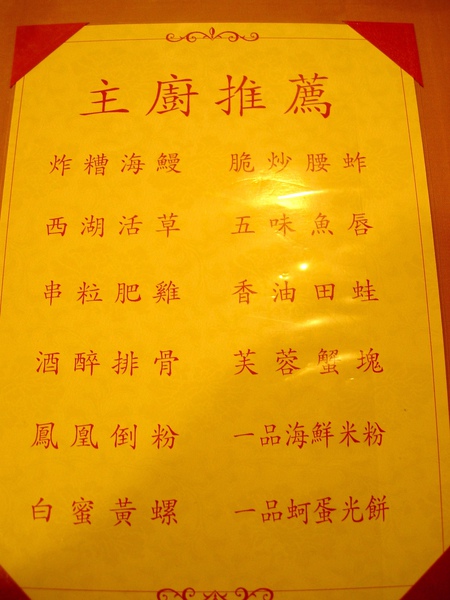 主廚推薦
炸糟海鰻 脆炒腰蚱
西湖活草 五味魚唇
串粒肥雞 香油田蛙
酒醉排骨 芙蓉蟹塊
鳳凰倒粉 一品海鮮米粉
白蜜黃螺 一品蚵蛋光餅